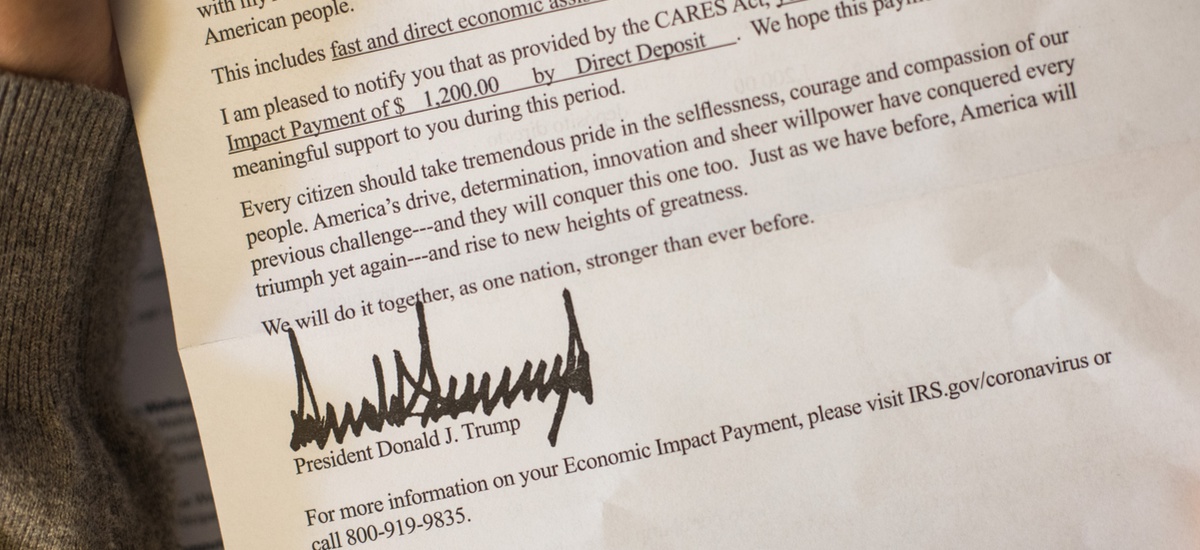 with my
American people.
This includes fast and direct economic
I am pleased to notify you that as provided by the CARES Act,
Impact Payment of $ 1,200.00 by Direct Deposit . We hope this
meaningful support to you during this period.
Every citizen should take tremendous pride in the selflessness, courage and compassion of our
people. America's drive, determination, innovation and sheer willpower have conquered every
previous challenge---and they will conquer this one too. Just as we have before, America will
triumph yet again---and rise to new heights of greatness.
We will do it together, as one nation, stronger than ever before.
President Donald J. Trump
For more information on your Economic Impact Payment, please visit IRS.gov/coronavirus or
call 800-919-9835.